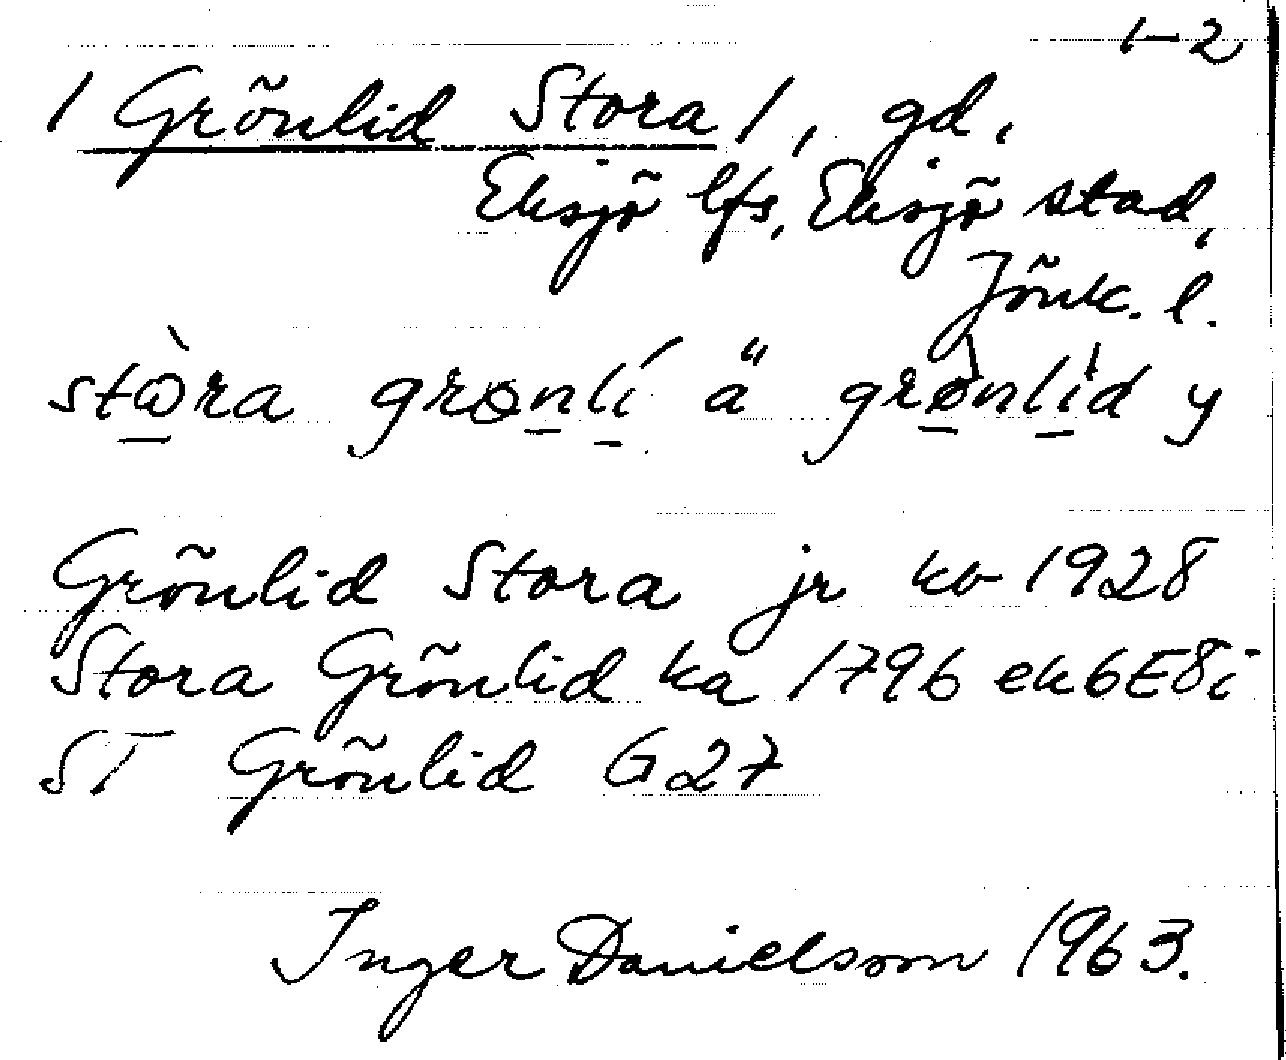 1-2
/ Grönlid Stora /, gd,
Eksjö lfs, Eksjö stad,
Jönk. l.
stòra grønlí ä" grønlid y
Grönlid Stora jr ko 1928
Stora Grönlid ka 1796 ek6E8i
ST Grönlid G27
Inger Danielsson 1963.